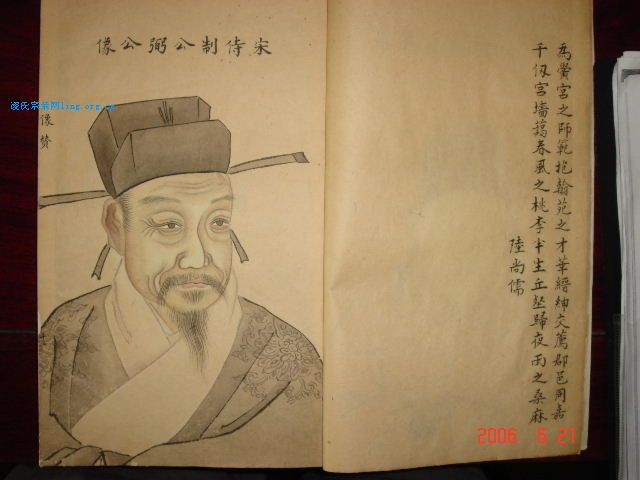 宋侍制公弼公像
凌氏宗亲网ling.org.cn
像贊
為黌宮之師範抱翰苑之才華縉紳交薦郡邑同嘉
千仭宮墻藹春風之桃李半生丘壑歸夜雨之桑麻
陸尚儒
2006. 6.21